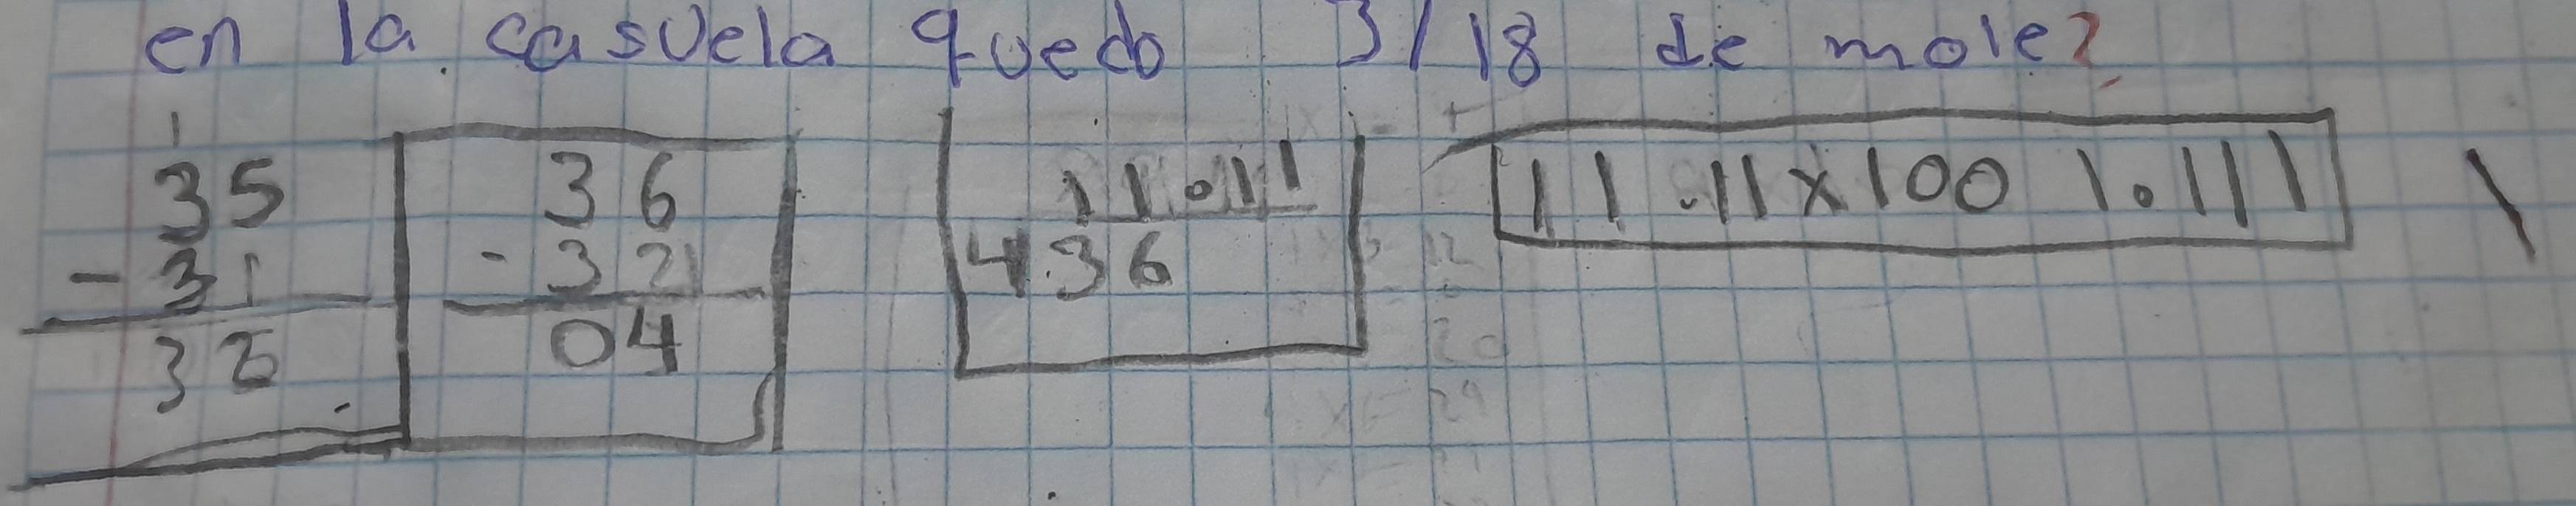 en la casuela quedo 3/18 de mole?
1
35 36 11.11 11.11x100 1.111
- 31 - 32 436
32 04